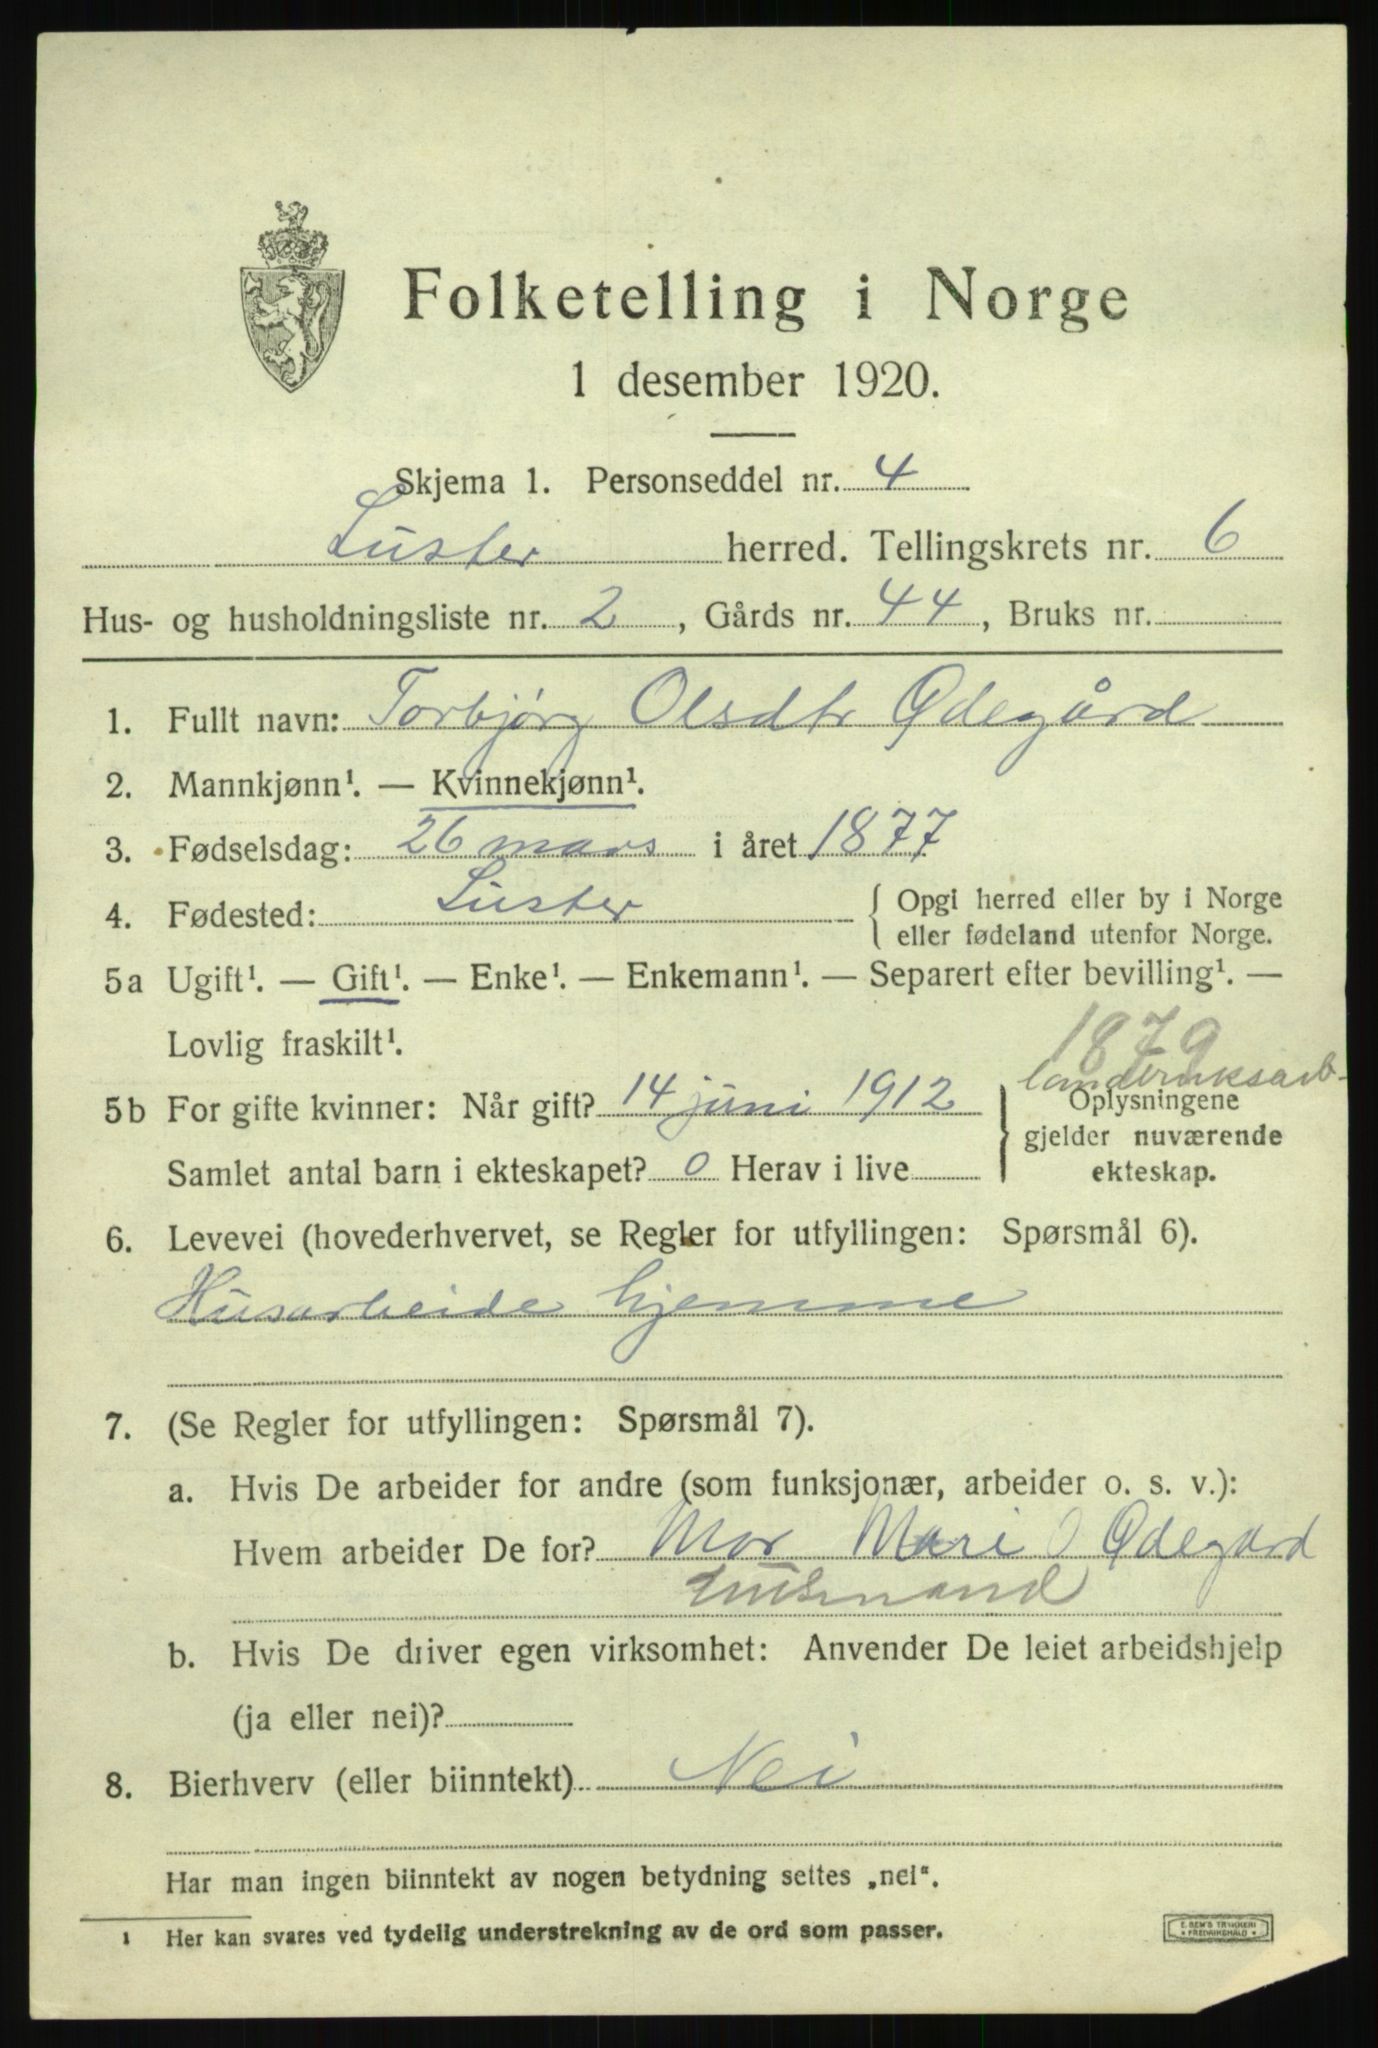 Folketelling i Norge
1 desember 1920.
Skjema 1. Personseddel nr. 4
Luster herred. Tellingskrets nr. 6
Hus- og husholdningsliste nr. 2, Gårds nr. 44, Bruks nr.
1. Fullt navn: Torbjørg Olsdtr Ødegård
2. Mannkjønn¹. — Kvinnekjønn¹.
3. Fødselsdag: 26 mars i året 1877
4. Fødested: Luster { Opgi herred eller by i Norge
eller fødeland utenfor Norge.
5a Ugift¹. — Gift¹. — Enke¹. — Enkemann¹. — Separert efter bevilling¹. —
Lovlig fraskilt¹.
1879
landbruksarb.
5b For gifte kvinner: Når gift? 14 juni 1912 } Oplysningene
gjelder nuværende
Samlet antal barn i ekteskapet? 0 Herav i live ekteskap.
6. Levevei (hovederhvervet, se Regler for utfyllingen: Spørsmål 6).
Husarbeide hjemme
7. (Se Regler for utfyllingen: Spørsmål 7).
a. Hvis De arbeider for andre (som funksjonær, arbeider o. s. v.):
Hvem arbeider De for? Mor Mari O Ødegard
b. Hvis De driver egen virksomhet: Anvender De leiet arbeidshjelp
(ja eller nei)?
8. Bierhverv (eller biinntekt) Nei
Har man ingen biinntekt av nogen betydning settes „nei“.
¹ Her kan svares ved tydelig understrekning av de ord som passer.
E. SEM'S TRYKKERI
FREDRIKSHALD